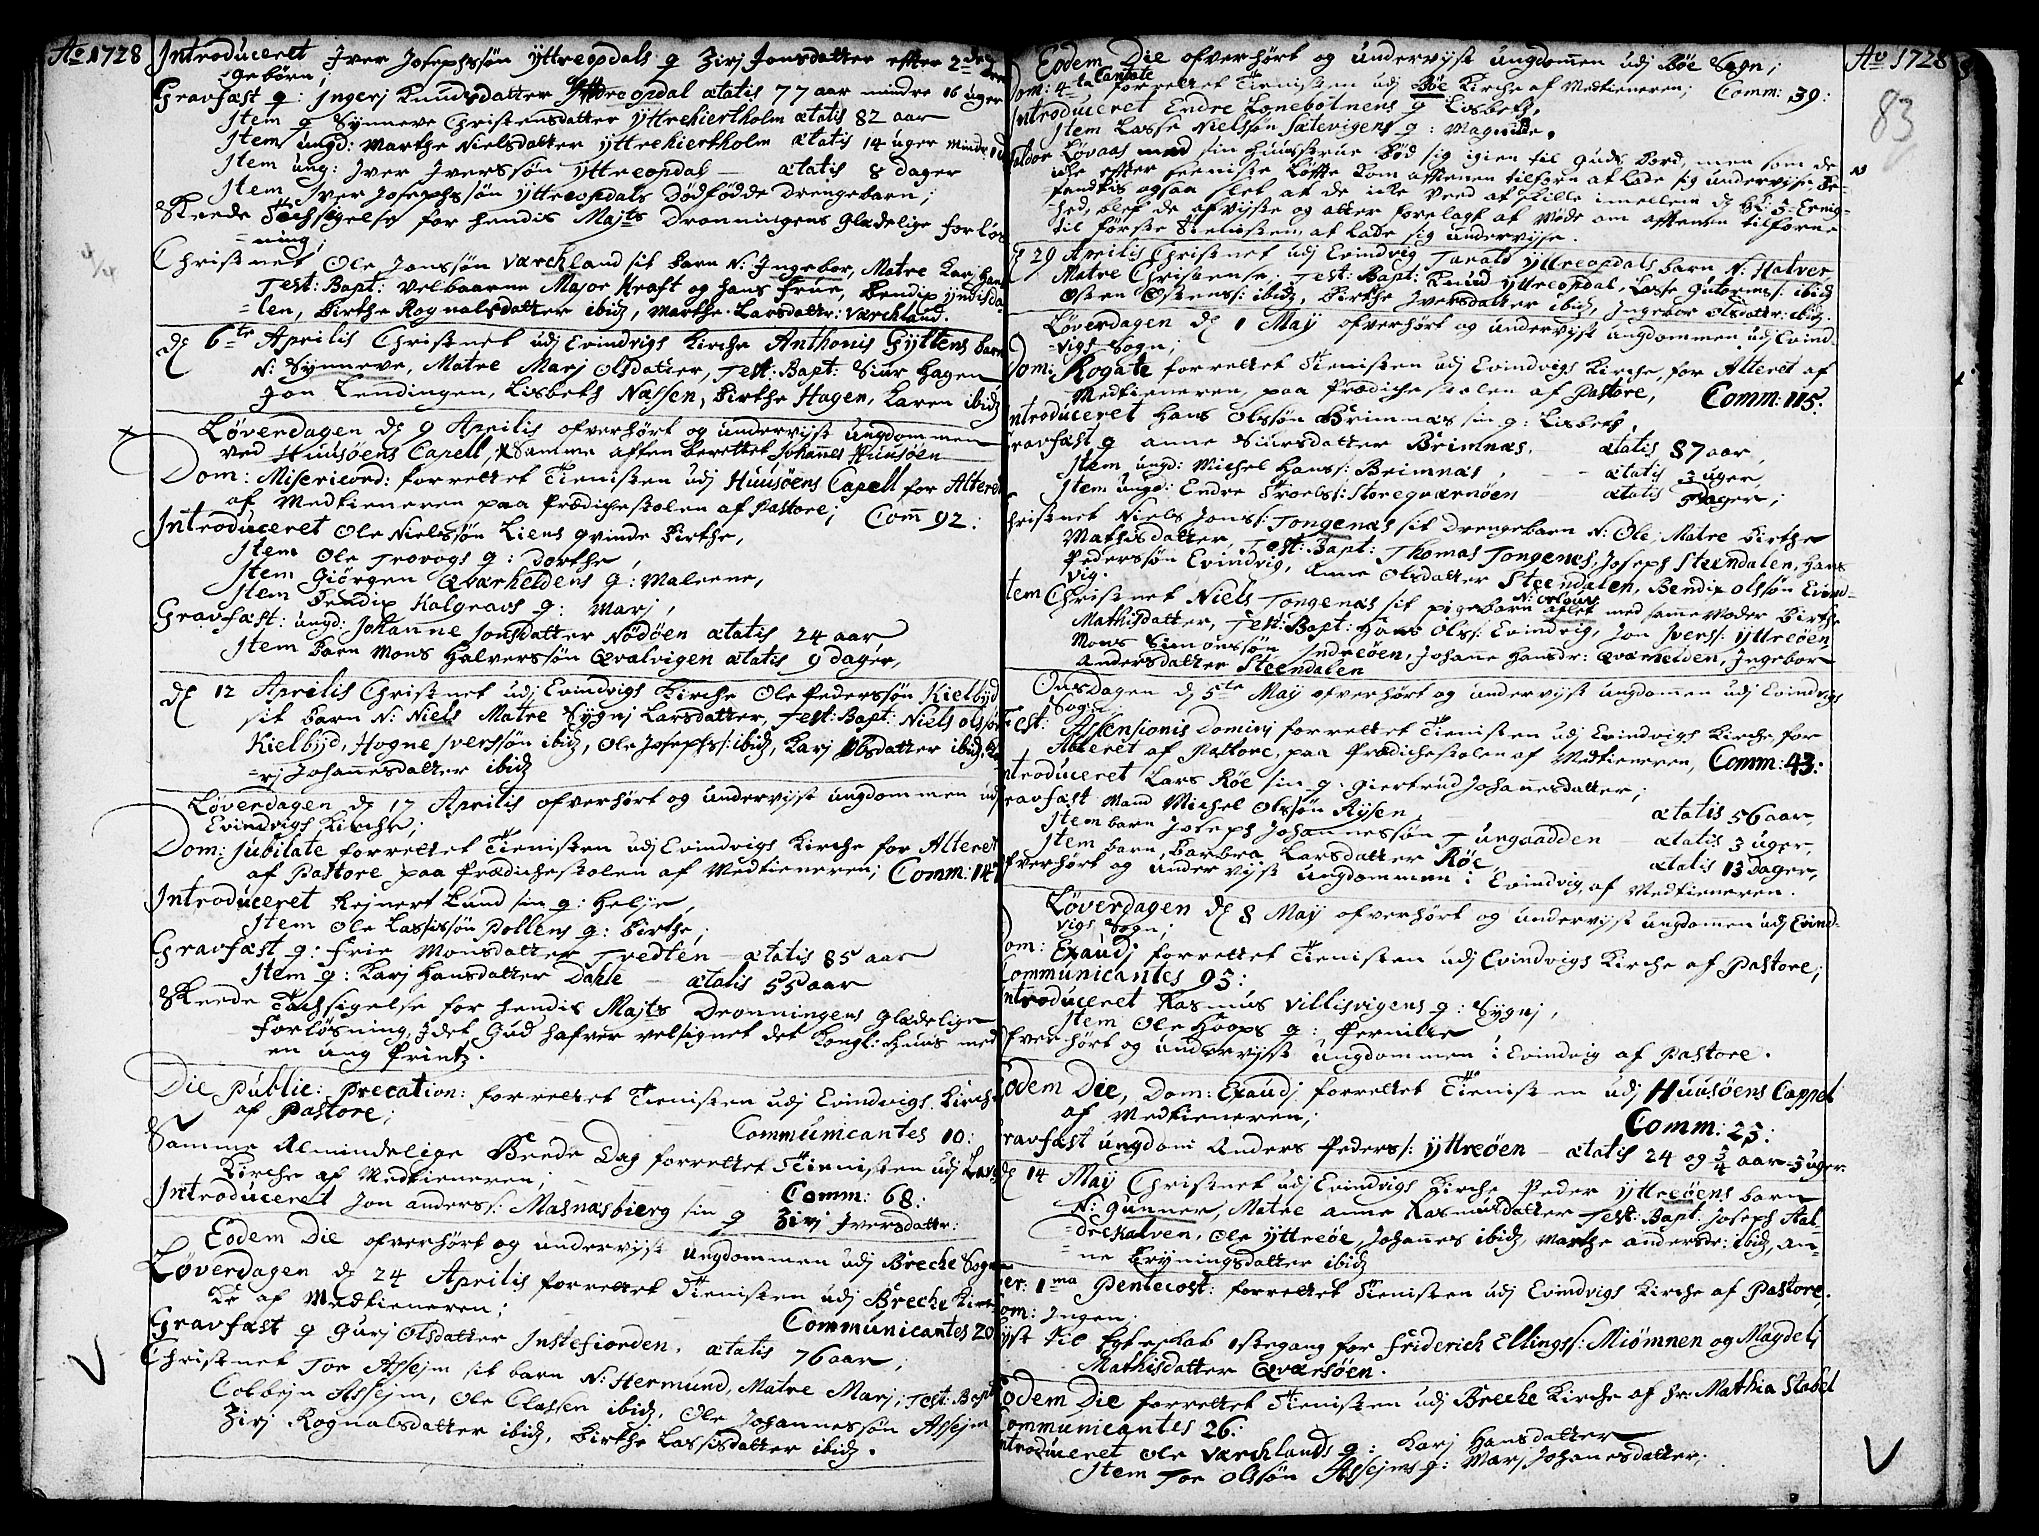 Ao 1728
Introduceret Iver Josephssøn Yttreopdals q Zirj Jonsdatter efter 2de
-gebørn;
Gravfæst q: Ingerj Knudsdatter Yttreopdal ætatis 77 aar mindre 16 uger
Item q Synneve Christensdatter Yttrehiertholm ætatis 82 aar
Item ungd: Marthe Nielsdatter Yttrehiertholm ætatis 14 uger mindre 1
Item ung: Iver Iverssøn Yttreopdal — ætatis 8 dager
Item Iver Josephssøn Yttreopdals dødfødde drengebarn;
Skeede Tachsigelse for hendis Majts Dronningens glædelige forløs
=ning;
Christnet Ole Jonssøn Værchland sit barn N: Ingebor, Matre Karj
Test: Bapt: Velbaarne Major Kraft og hans frue, Bendix Yndisda-
=len, Birthe Rognalsdatter ibid, Marthe Larsdattr: Værchland.
d 6te Aprilis Christnet udj Evindvigs Kirche Anthonis Gyttens barn
N: Synneve, Matre Marj Olsdatter, Test: Bapt: Siur Hagen
Jon Lendingen, Lisbeth Næssen, Birthe Hagen, Karen ibid
Løverdagen d 9 Aprilis ofverhørt og undervijst ungdommen
ved Huusøens Capell, Samme aften berettet Johannes Huusøen
Dom: Misericord: forrettet Tienisten udj Huusøens Capell for Alteret
af Medtieneren paa Prædichestolen af Pastore; Com 92:
Introduceret Ole Nielssøn Liens qvinde Birthe,
Item Ole Trovogs q: Dorthe,
Item Giörgen Qværheldens q: Maleene,
Item Bendix Kalgravs q: Marj,
Gravfæst: ungd: Johanne Jonsdatter Nödöen ætatis 24 aar
Item barn Mons Halverssøn Qvalvigen ætatis 9 dager,
d 12 Aprilis Christnet udj Evindvigs Kirche Ole Pederssøn Kielbyd
sit barn N: Niels Matre Sygnj Larsdatter, Test: Bapt: Niels Olssøn
Kielbyd, Hogne Iverssøn ibid, Ole Josephs: ibid, Karj Olsdatter ibid,
=rj Johannesdatter ibid
Løverdagen d 17 Aprilis ofverhørt og undervijst ungdommen udj
Evindvigs Kirche;
Dom: Jubilate forrettet Tienisten udj Evindvigs Kirche for Alteret
af Pastore paa Prædichestolen af Medtieneren; Comm: 14
Introduceret Reinert Lund sin q: Helje,
Item Ole Lassissøn Pollens q: Birthe,
Gravfæst q: Frie Monsdatter Tvedten — ætatis 85 aar
Item q: Karj Hansdatter Dahle — ætatis 55 aar
Skeede Tachsigelse for hendis Majts Dronningens glædelige
forløsning, idet Gud hafver velsignet det Kongl: Huus med
en ung Printz.
Die Public: Precation: forrettet Tienisten udj Evindvigs Kirche
af Pastore; Communicantes 10:
Samme Almindelige Beede Dag forrettet Tienisten udj
Kirche af Medtieneren; Comm: 68:
Introduceret Jon Anders: Masnæsbierg sin q Zirj Iversdattr:
Eodem Die ofverhørt og undervijst ungdommen udj Breche Sogn
Løverdagen d 24 Aprilis forrettet Tienisten udj Breche Kir-
ke af Medtieneren; Communicantes 20
Gravfæst q Gurj Olsdatter Instefiorden, ætatis 76 aar;
Christnet Tor Assejm sit barn N: Hermund, Matre Marj, Test: Bapt
Colbejn Assejm, Ole Classen ibid, Ole Johannessøn Assejm
Zirj Rognalsdatter ibid, Birthe Lassisdatter ibid.
Ao 1728
83
Eodem Die ofverhørt og undervijst ungdommen udj Bøe Sogn;
Dom: 4ta Cantate forrettet Tienisten udj Bøe Kirche af Medtieneren; Comm: 39:
Introduceret Endre Lønebotnens q Lisbeth,
Item Lasse Nielssøn Sætevigens q: Magnilde.
Løvaas med sin Huustrue bød sig igien til Guds bord, men som de
iche efter seeniste løfte kom aftenen tilforn at lade sig undervijse be-
fendtis ogsaa slet at de icke veed at skille imellem d H: 3: Eenig-
hed, blef de afvijste og atter forelagt at møde om aftenen tilforne
til første Tienisten, at lade sig undervijse.
d 29 Aprilis Christnet udj Evindvig Tarald Yttreopdals barn N: Halver
Matre Christense. Test: Bapt: Knud Yttreopdal, Lasse Gutorms: ibid
Osten Ostens: ibid, Birthe Iversdatter ibid, Ingebor Olsdatter: ibid.
Løverdagen d 1 Maij ofverhørt og undervijst ungdommen udj Evind-
=vigs Sogn;
Dom: Rogate forrettet Tienisten udj Evindvigs Kirche, for Alteret af
Medtieneren, paa Prædichestolen af Pastore, Comm: 115:
Introduceret Hans Olssøn Brimnæs sin q: Lisbeth,
Gravfæst q Anne Siursdatter Brimnæs, ætatis 87 aar,
Item ungd: Michel Hans: Brimnæs, — ætatis 3 uger,
Item ungd: Endre Troels: Storeqværnöen ætatis 5 dager;
Christnet Niels Jons: Tongenæs sit drengebarn N: Ole, Matre Birthe
Mathisdatter, Test: Bapt: Thomas Tongenes, Joseph Steendalen, Hans
Pederssøn Evindvig, Anne Olsdatter Steendalen, Bendix Olssøn Evind-
vig.
Item Christnet Niels Tongenæs sit pigebarn aflet med samme Moder Birthe
Mathisdatter, Test: Bapt: Hans Ols: Evindvig, Jon Ivers: Yttreöen
Mons Simonssøn Indreöen, Johanne Hansdr: Qværhelden, Ingebor
Andersdatter Steendalen
Onsdagen d 5te Maij ofverhørt og undervijst ungdommen udj Evindvigs
Sogn;
Fest: Assensionis Dominj forrettet Tienisten udj Evindvigs Kirche, for
Alteret af Pastore, paa Prædichestolen af Medtieneren, Comm: 43:
Introduceret Lars Røe sin q: Giertrud Johannesdatter;
Gravfæst mand Michel Olssøn Rijsen ætatis 56 aar,
Item barn Joseph Johannessøn Tungaadden — ætatis 3 uger,
Item barn Barbra Larsdatter Røe, ætatis 13 dager,
Ofverhørt og undervijst ungdommen i Evindvig, af Medtieneren.
Løverdagen d 8 Maij ofverhørt og undervijst ungdommen udj Evind-
vigs Sogn;
Dom: Exaudj forrettet Tienisten udj Evindvigs Kirche af Pastore;
Communicantes 93:
Introduceret Rasmus Villisvigens q: Sygnj,
Item Ole Hoops q: Pernille
Ofverhørt og undervijst ungdommen i Evindvig af Pastore.
Eodem Die, Dom: Exaudj forrettet Tienisten udj Huusøens Cappel
af Medtieneren; Comm: 23:
Gravfæst ungdom Anders Peders: Yttreöen — ætatis 24 og 3/4 aar 3 uger.
d 14 Maij Christnet udj Evindvigs Kirche Peder Yttreöens barn
N: Gunner, Matre Anne Rasmusdatter Test: Bapt: Joseph Aal-
=drekalven, Ole Yttreöe, Johannes ibid, Marthe Andersdr: ibid, An=
=ne Bryningsdatter ibid
Fer: 1ma Pentecost: forrettet Tienisten udj Evindvigs Kirche af Pastore,
Com: Ingen;
Lyst til Egteskab 1stegang for Friderich Ellings: Miömnen og Magdelj
Mathisdatter Qværsøen.
Eodem Die forrettet Tienisten udj Breche Kirche af Hr: Mathia Stabel
Communicantes 26:
Introduceret Ole Værchlands q: Karj Hansdatter
Item Tor Olssøn Assejms q: Marj Johannesdatter,